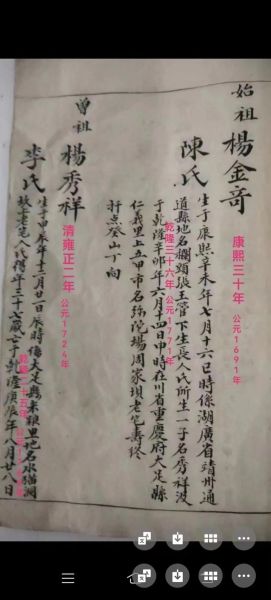 始祖楊金奇
康熙三十年 公元1691年
陳氏
生于康熙辛未年七月十六巳時係湖廣省靖州通
道縣地名欄頭張王管下生長人氏所生一子名秀祥
于乾隆辛卯年六月十四日申時在川省重慶府大足縣
乾隆三十六年 公元1771年
仁義里上五甲市名弥陀場周家垻老宅壽終
針点癸山丁向
曽祖楊秀祥
清雍正二年 公元1724年
李氏
生于甲辰年十二月廿一日辰時
大足縣
里地名水
人氏
年三十七歲亡于乾隆庚辰年八月廿八日
乾隆二十五年